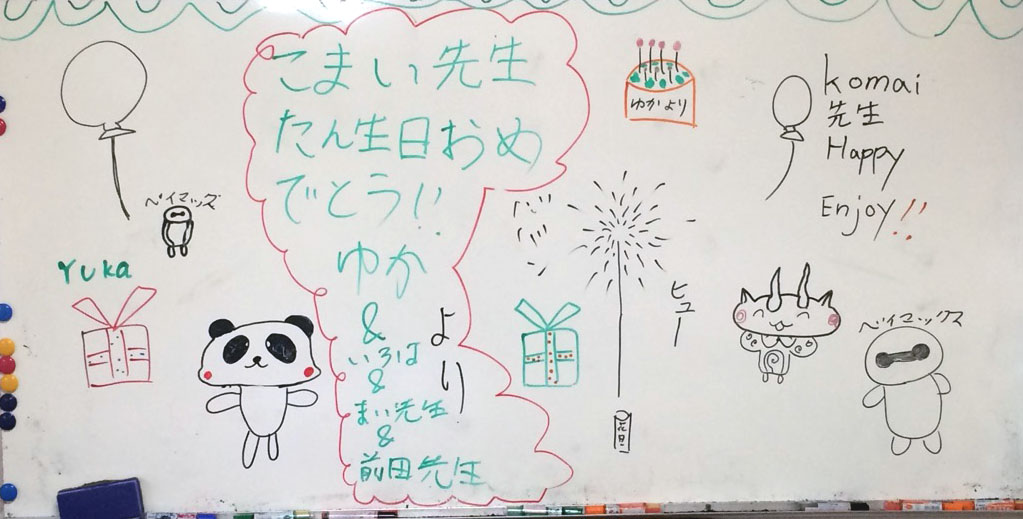 こまい先生
たん生日おめ
でとう!!
ゆか
&
いろは
&
まい先生
&
前田先生
より
ベイマックス
Yuka
ゆかより
komai
先生
Happy
Enjoy!!
ヒュー
花火
ベイマックス